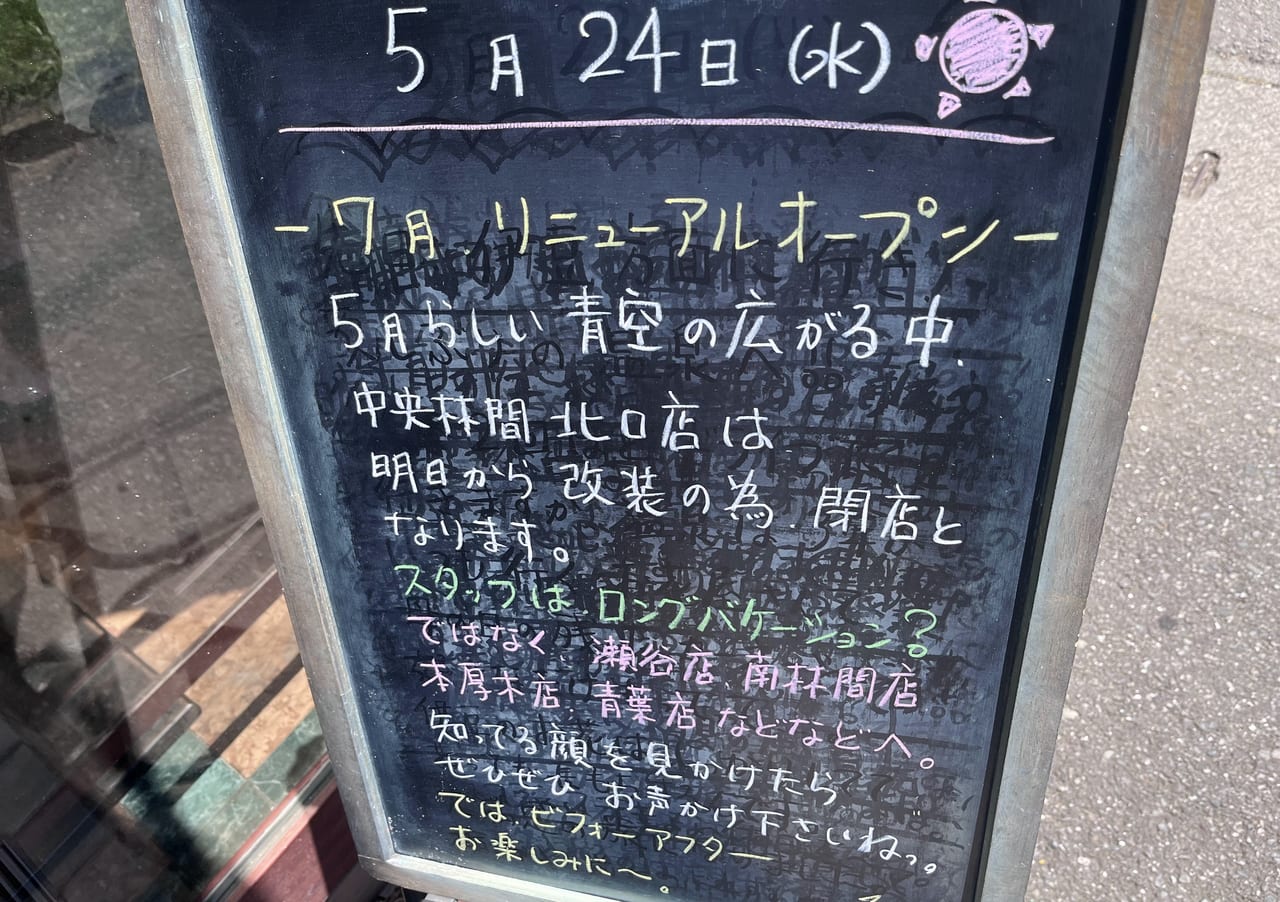 5月24日(水)
-7月.リニューアルオープン-
5月らしい青空の広がる中.
中央林間北口店は
明日から改装の為.閉店と
なります。
スタッフは.ロングバケーション?
ではなく、瀬谷店 南林間店
本厚木店.青葉店などなどへ。
知ってる顔を見かけたら
ぜひぜひお声かけ下さいねっ。
では.ビフォーアフター
お楽しみに〜。